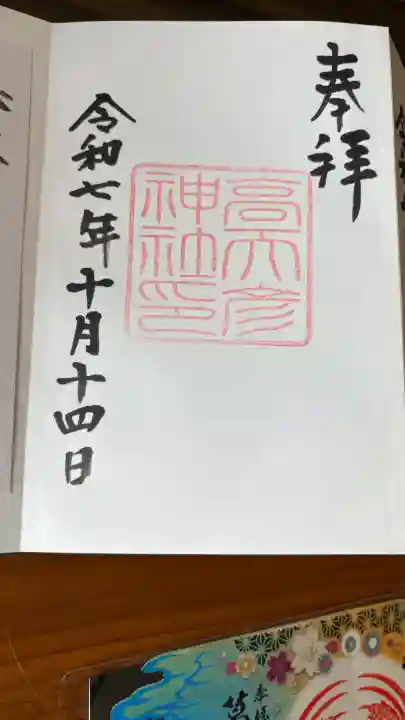 奉拝
高天彦
神社印
令和七年十月十四日
奉拝
葛